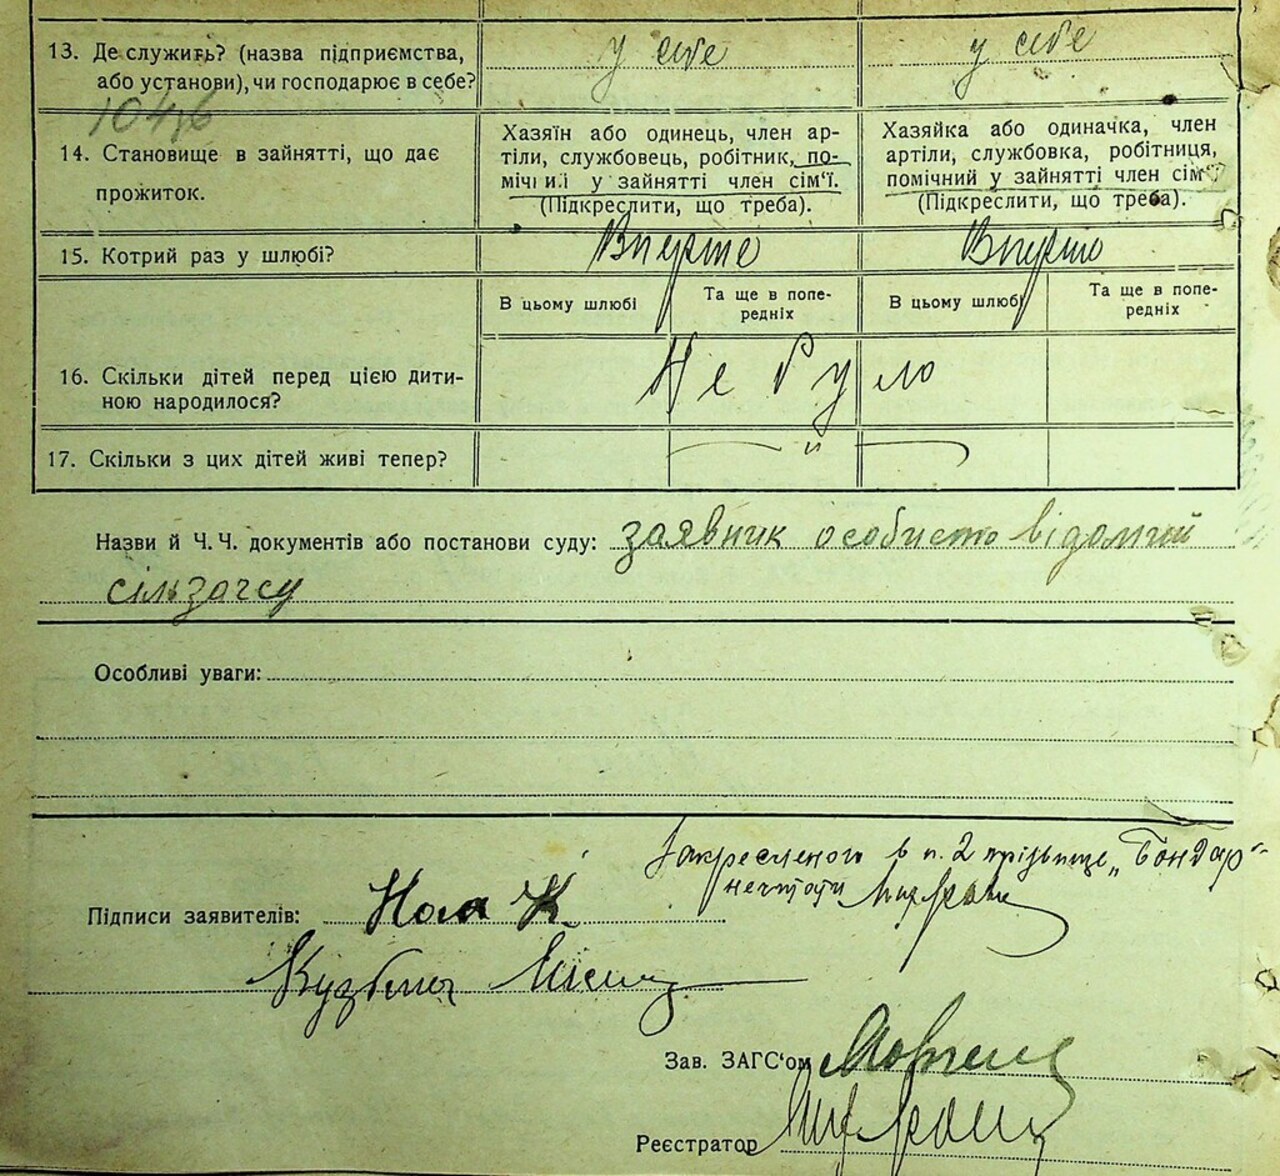 13. Де служить? (назва підприємства, у себе у себе
або установи), чи господарює в себе?
14. Становище в зайнятті, що дає
прожиток.
Хазяїн або одинець, член ар-
тіли, службовець, робітник, по-
мічний у зайнятті член сім'ї.
(Підкреслити, що треба).
Хазяйка або одиначка, член
артіли, службовка, робітниця,
помічний у зайнятті член сім'ї
(Підкреслити, що треба).
15. Котрий раз у шлюбі? Вперше Вперше
В цьому шлюбі Та ще в попе-
редніх В цьому шлюбі Та ще в попе-
редніх
16. Скільки дітей перед цією дити-
ною народилося? Не було
17. Скільки з цих дітей живі тепер? — " —
Назви й Ч. Ч. документів або постанови суду: заявник особисто відомий
сільзагсу
Особливі уваги:
Закресленого в п. 2 прізвище „Бондар"
нечитати
Підписи заявителів:
Зав. ЗАГС'ом
Реєстратор